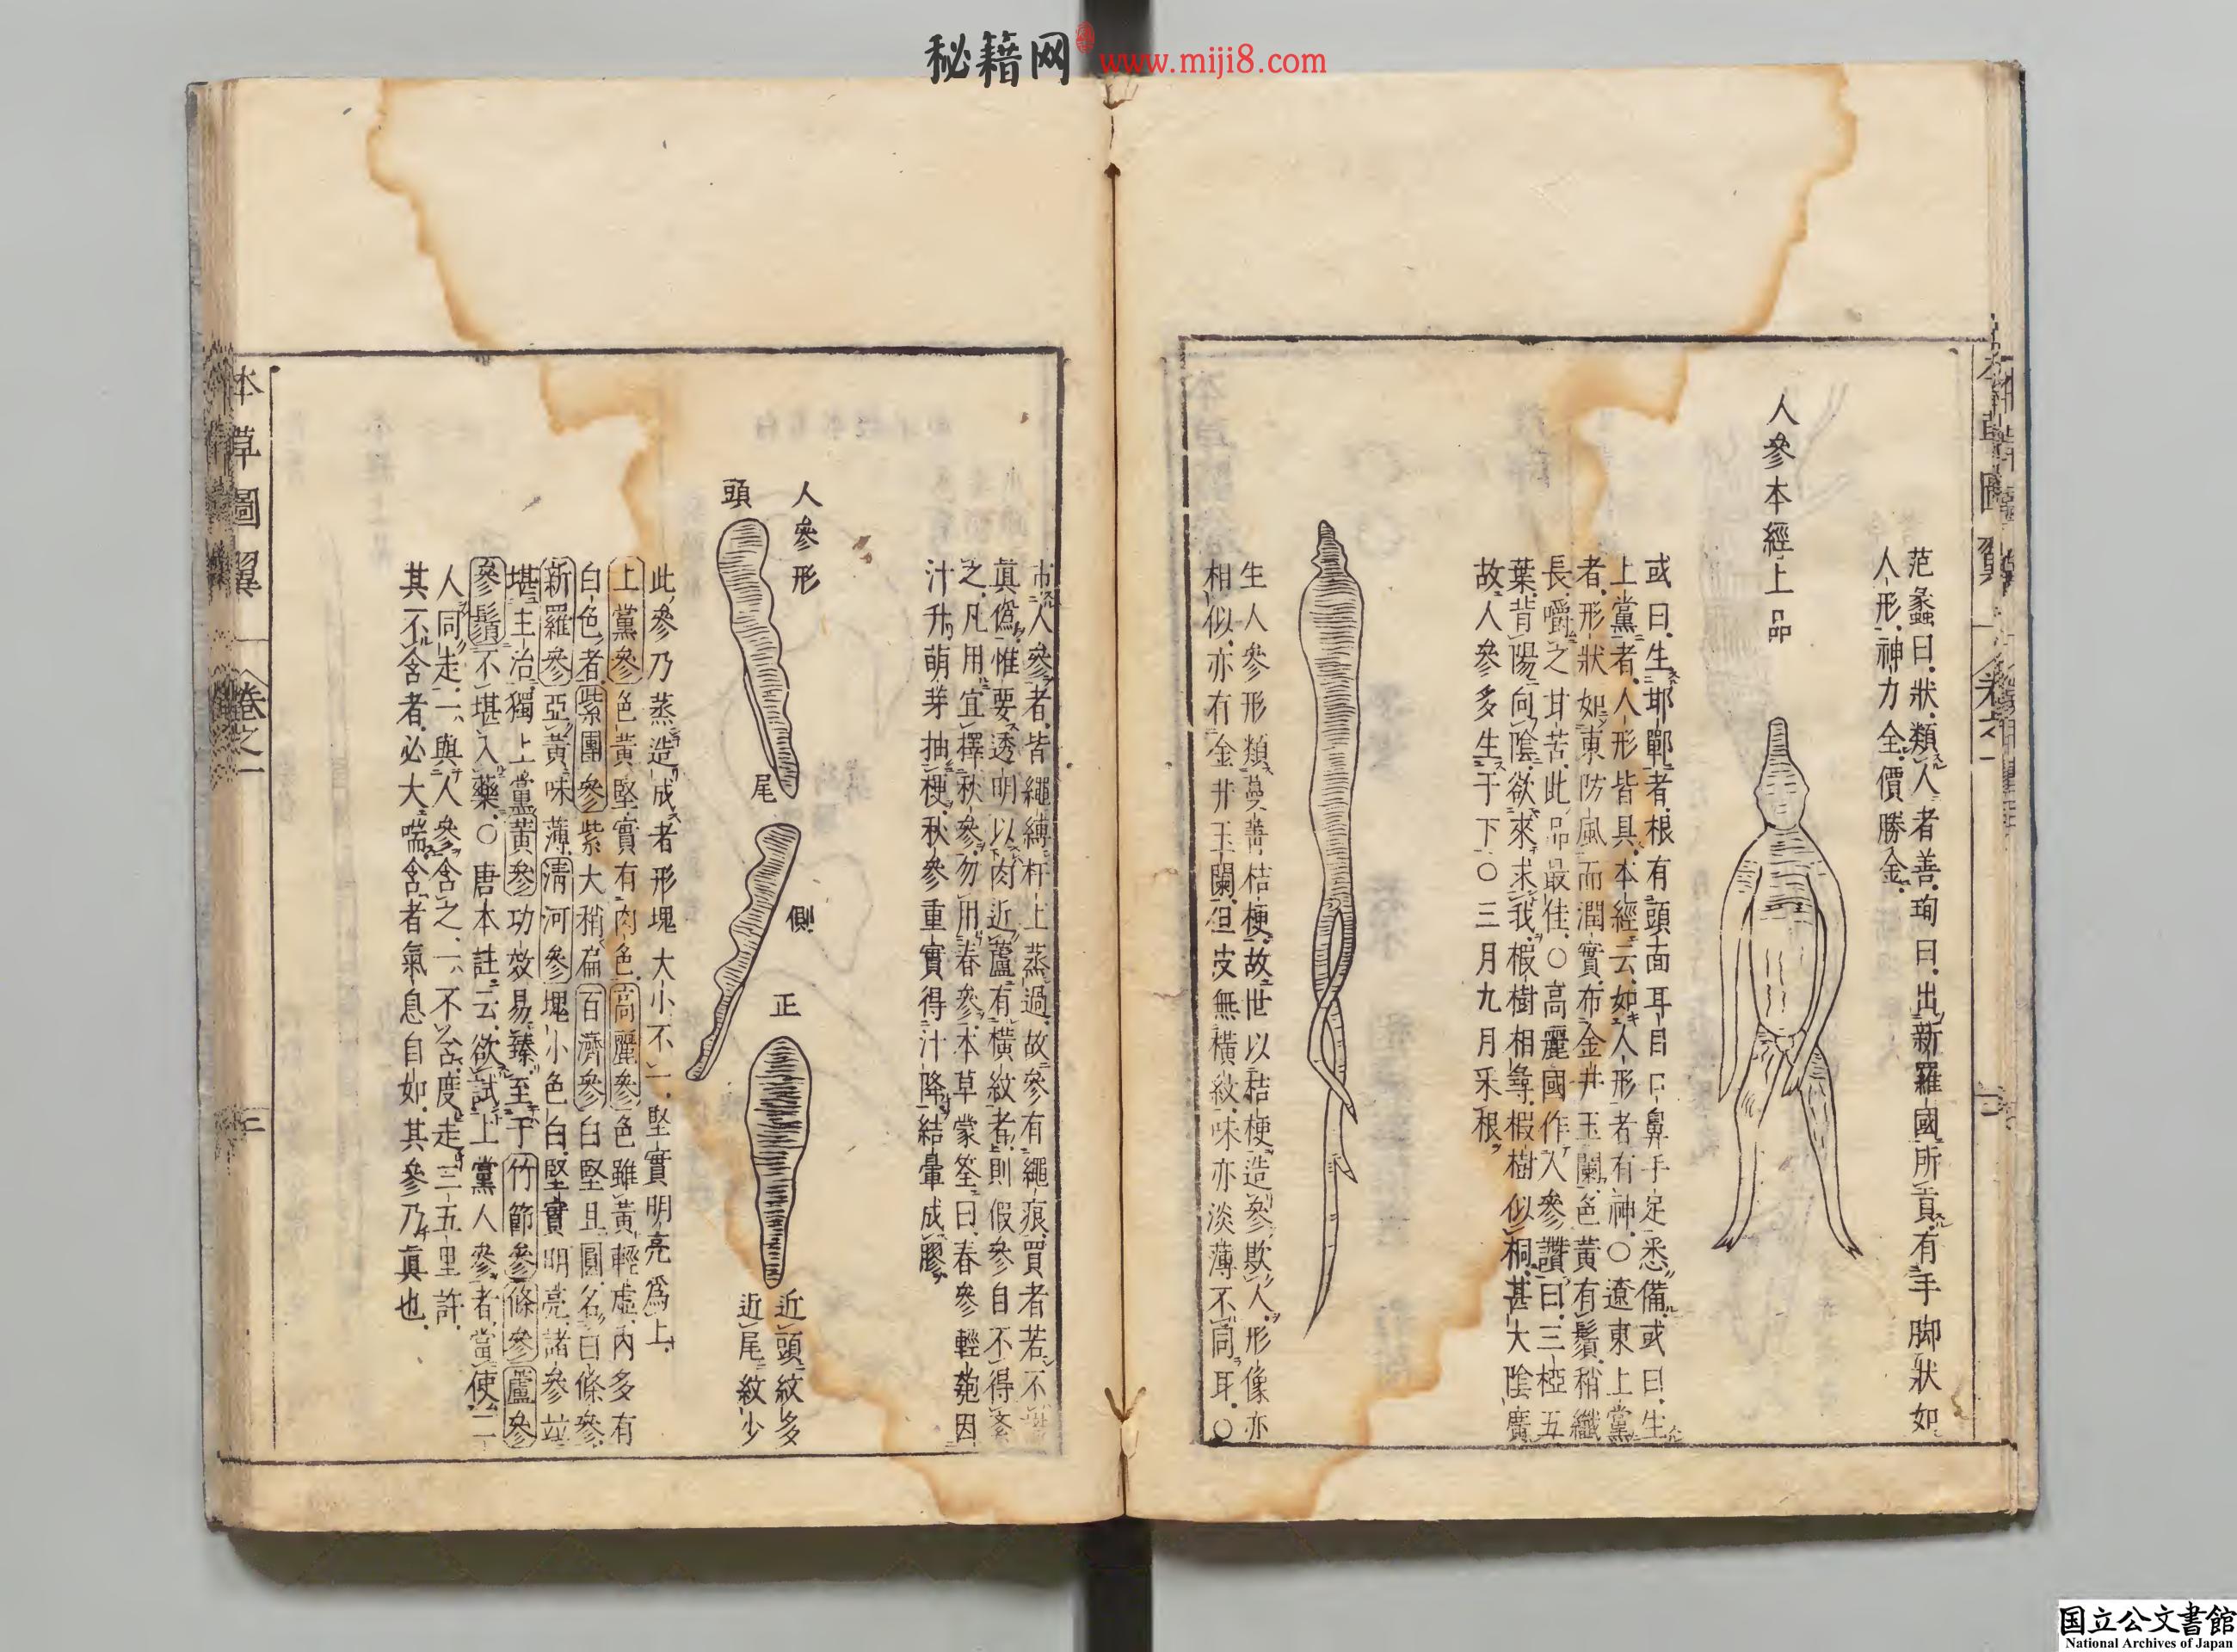 秘籍网 www.miji8.com
人參本經上品
范蠡曰狀類人者善珣曰出新羅國所貢有手脚狀如
人形神力全價勝金
或曰生耶鄲者根有頭面耳目口鼻手定悉備或曰生
上黨者人形皆具本經云如人形者有神〇遼東上黨
者形狀如東防風而潤實布金井玉闌色黃有鬚稍纖
長嚼之甘苦此品最佳〇高麗國作人參讚曰三椏五
葉背陽向陰欲來求我椵樹相尋椵樹似桐甚大陰廣
故人參多生于下〇三月九月采根
生人參形類蔓菁桔梗故世以桔梗造參欺人形像亦
相似亦有金井玉闌但皮無橫紋味亦淡薄不同耳〇
市人參者皆繩縛杆上蒸過故參有繩痕買者若不
眞僞惟要透明以肉近蘆有橫紋者則假參自不得紊
之凡用宜擇秋參勿用春參本草蒙筌曰春參輕匏因
汁升萌芽抽梗秋參重實得汁降結暈成膠
人參形
頭
尾
側
正
近頭紋多
近尾紋少
此參乃蒸造成者形塊大小不一堅實明亮爲上
上黨參色黃堅實有肉色高麗參色雖黃輕虛內多有
白色者紫團參紫大稍扁百濟參白堅且圓名白條參
新羅參亞黃味薄淸河參塊小色白堅實明亮諸參竝
堪主治獨上黨黃參功效易臻至于竹節參條參蘆參
參鬚不堪入藥〇唐本註云欲試上黨人參者當使二
人同走一與人參含之一不含度走三五里許
其不含者必大喘含者氣息自如其參乃眞也
本草圖翼 卷之一 三
国立公文書館
National Archives of Japan